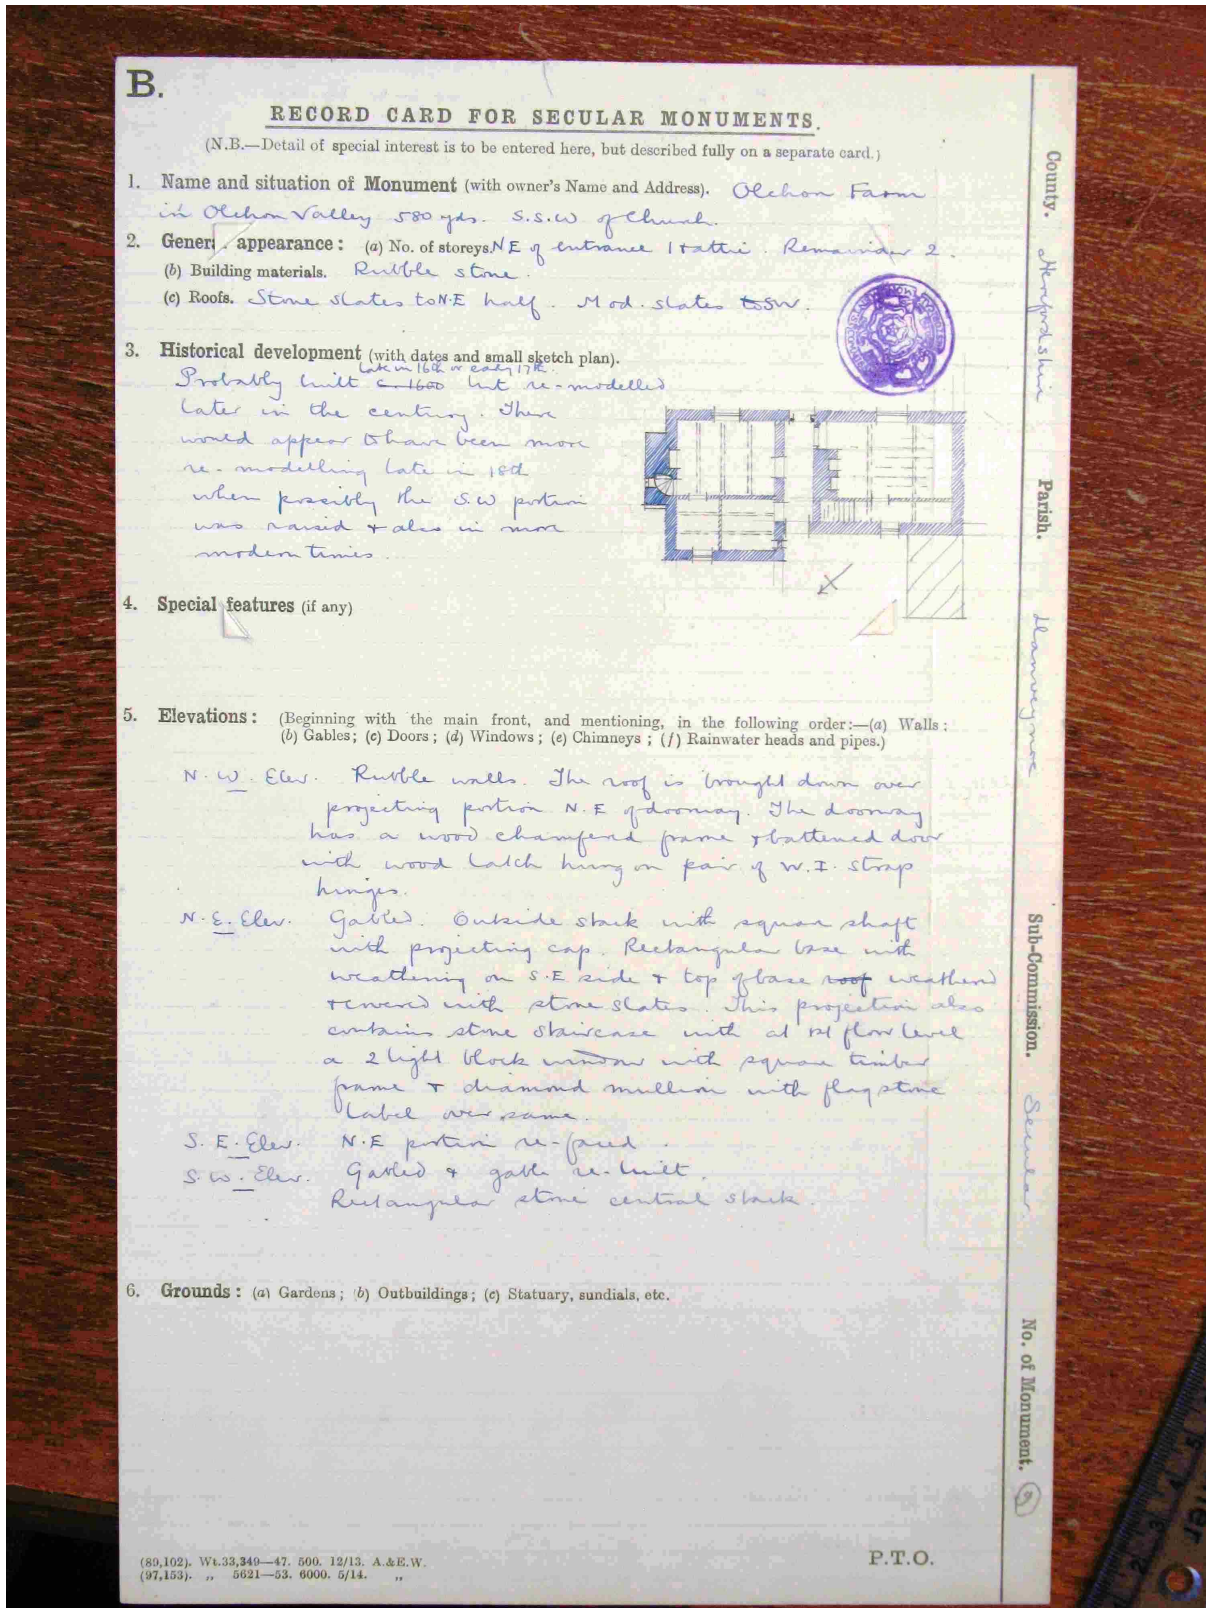 B.
RECORD CARD FOR SECULAR MONUMENTS.
(N.B.—Detail of special interest is to be entered here, but described fully on a separate card.)
1. Name and situation of Monument (with owner's Name and Address). Olchon Farm
in Olchon Valley 580 yds. S.S.W of Church.
2. General appearance: (a) No. of storeys. NE of entrance 1 & attic. Remainder 2.
(b) Building materials. Rubble stone.
(c) Roofs. Stone slates to N.E half. Mod. slates to SW.
3. Historical development (with dates and small sketch plan).
late in 16th or early 17th
Probably built c. 1600 but re-modelled
later in the century. There
would appear to have been more
re-modelling late in 18th
when possibly the S.W portion
was raised & also in more
modern times.
4. Special features (if any)
5. Elevations: (Beginning with the main front, and mentioning, in the following order:—(a) Walls:
(b) Gables; (c) Doors; (d) Windows; (e) Chimneys; (f) Rainwater heads and pipes.)
N.W. Elev. Rubble walls. The roof is brought down over
projecting portion N.E of doorway. The doorway
has a wood chamfered frame & battened door
with wood latch hung on pair of W.I. strap
hinges.
N.E. Elev. Gabled. Outside stack with square shaft
with projecting cap. Rectangular base with
weathering on S.E side & top of base roof weathered
& covered with stone slates. This projection also
contains stone staircase with at 1st floor level
a 2 light block window with square timber
frame & diamond mullion with flagstone
label over same.
S.E. Elev. N.E portion re-faced.
S.W. Elev. Gabled & gable re-built.
Rectangular stone central stack.
6. Grounds: (a) Gardens; (b) Outbuildings; (c) Statuary, sundials, etc.
(89,102). Wt.33,349—47. 500. 12/13. A.&E.W.
(97,153). „ 5621—53. 6000. 5/14. „
P.T.O.
County. Herefordshire
Parish. Llanveynoe
Sub-Commission. Secular
No. of Monument. 9